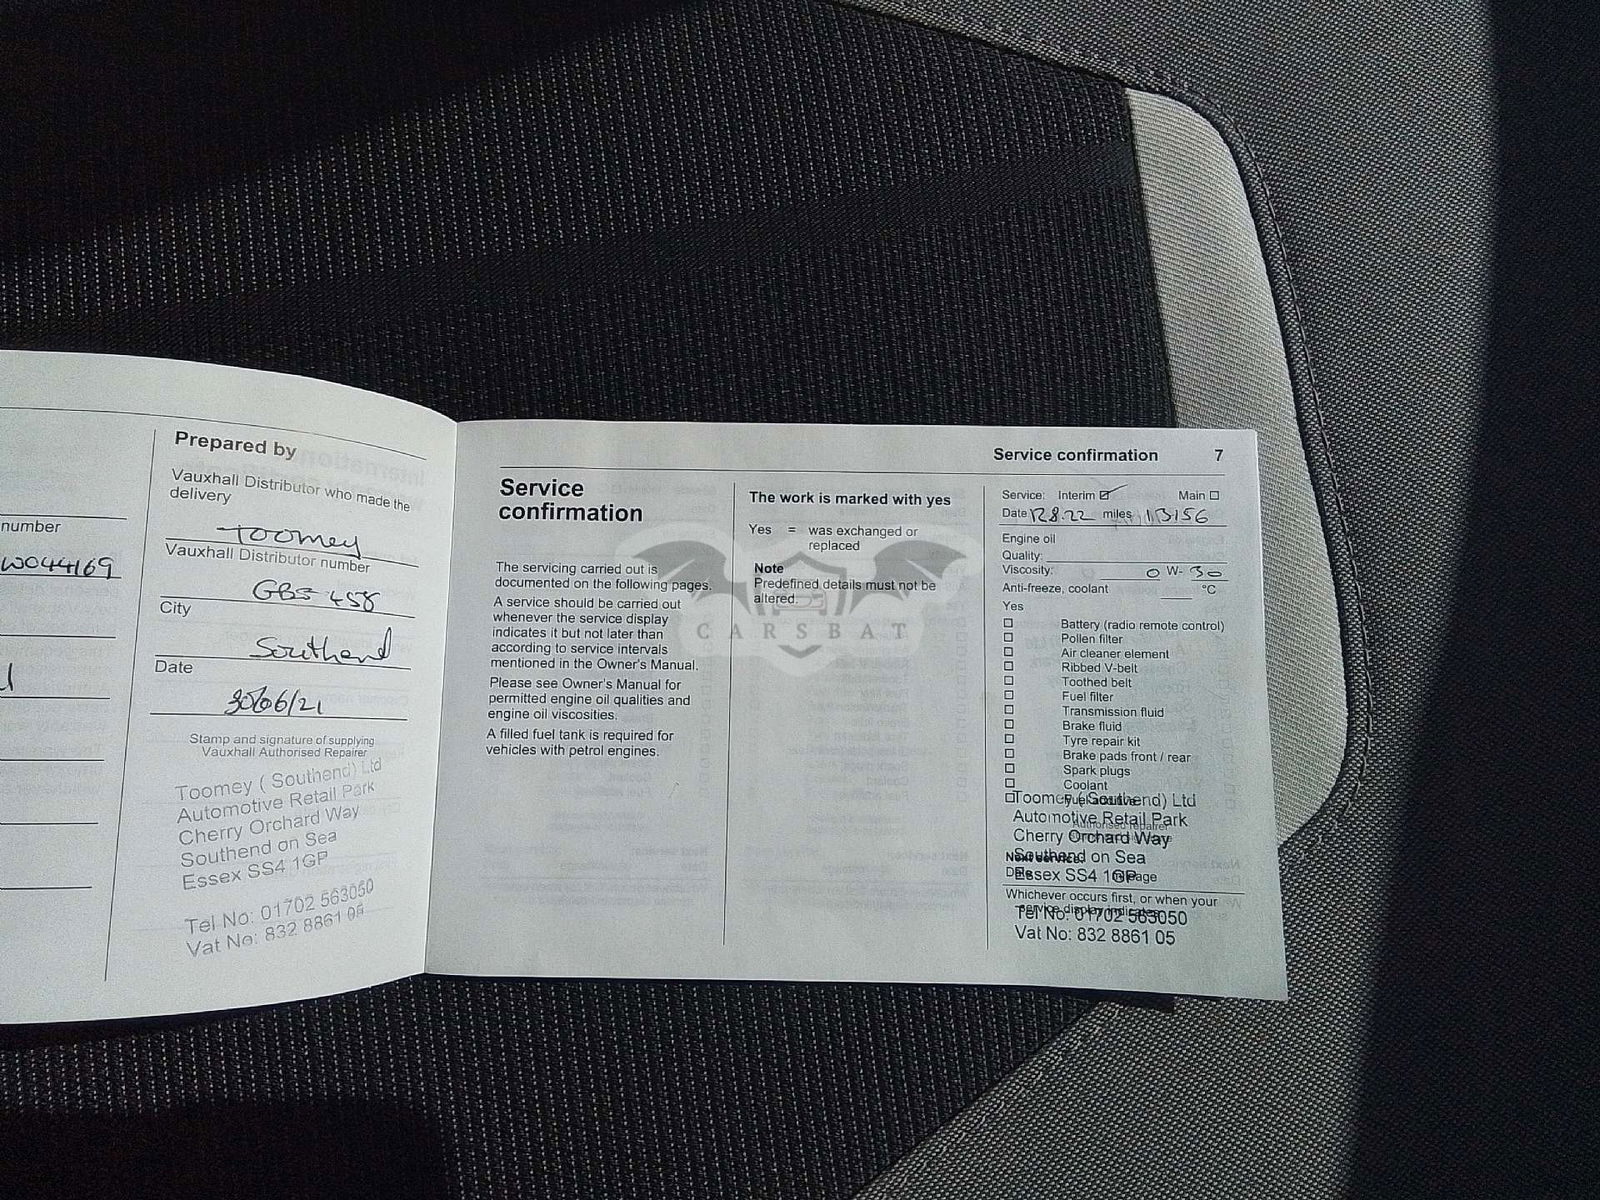 number
W044169
Prepared by
Vauxhall Distributor who made the
delivery
Toomey
Vauxhall Distributor number
GBS 458
City
Southend
Date
30/06/21
Stamp and signature of supplying
Vauxhall Authorised Repairer
Toomey ( Southend) Ltd
Automotive Retail Park
Cherry Orchard Way
Southend on Sea
Essex SS4 1GP
Tel No: 01702 563050
Vat No: 832 8861 05
Service confirmation 7
Service
confirmation
The servicing carried out is
documented on the following pages.
A service should be carried out
whenever the service display
indicates it but not later than
according to service intervals
mentioned in the Owner's Manual.
Please see Owner's Manual for
permitted engine oil qualities and
engine oil viscosities.
A filled fuel tank is required for
vehicles with petrol engines.
The work is marked with yes
Yes = was exchanged or
replaced
Note
Predefined details must not be
altered.
CARSBAT
Service: Interim Main
Date 12.8.22 miles 13156
Engine oil
Quality:
Viscosity: 0 W- 30
Anti-freeze, coolant °C
Yes
Battery (radio remote control)
Pollen filter
Air cleaner element
Ribbed V-belt
Toothed belt
Fuel filter
Transmission fluid
Brake fluid
Tyre repair kit
Brake pads front / rear
Spark plugs
Coolant
Toomey ( Southend) Ltd
Automotive Retail Park
Authorised repairer
Cherry Orchard Way
Next service:
Southend on Sea
Essex SS4 1GP
Whichever occurs first, or when your
service display indicates
Tel No: 01702 563050
Vat No: 832 8861 05